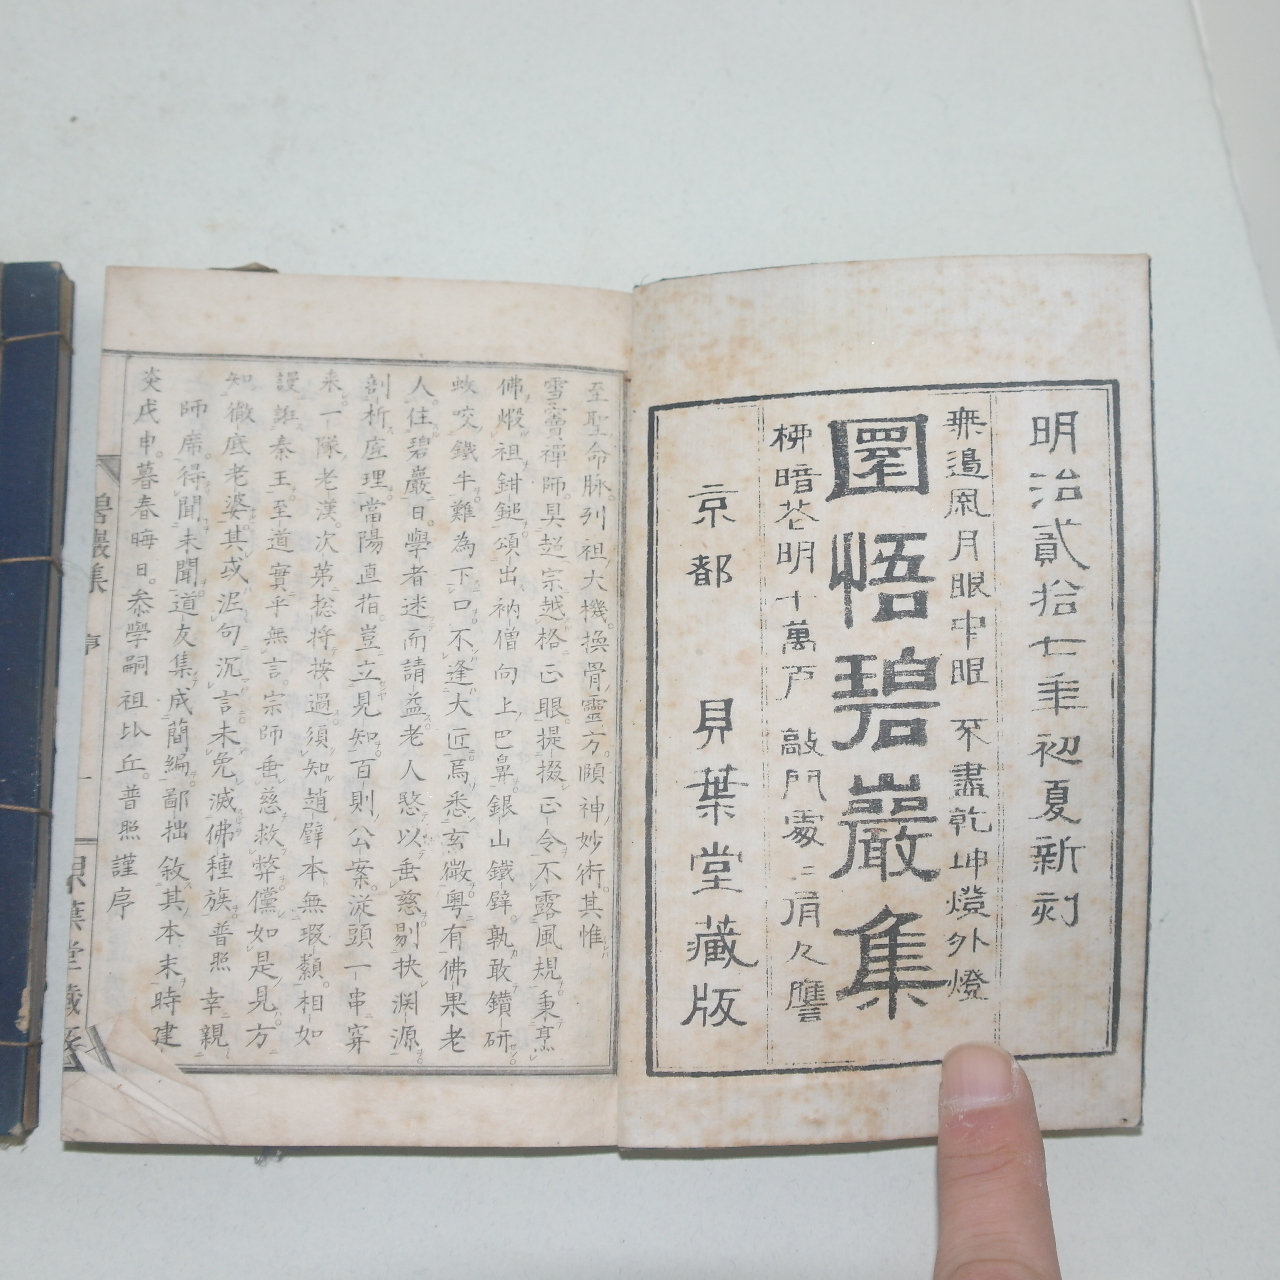 明治貳拾七年初夏新刻
無邊風月眼中眼 不盡乾坤燈外燈
圜悟碧巖集
柳暗花明十萬戸 敲門處〻有人譍
京都 貝葉堂藏版
至聖命脉。列祖大機。換骨靈方。頤神妙術。其惟
雪竇禪師。具超宗越格正眼。提掇正令。不露風規。秉烹
佛煅祖鉗鎚。頌出衲僧向上巴鼻。銀山鐵壁。孰敢鑽研。
蚊咬鐵牛。難為下口。不逢大匠。焉悉玄微。粤有佛果老
人。住碧巖日。學者迷而請益。老人愍以垂慈。剔抉淵源。
剖析底理。當陽直指。豈立見知。百則公案。從頭一串穿
来。一隊老漢。次第揔将按過。須知趙璧本無瑕纇。相如
謾誑秦王。至道實乎無言。宗師垂慈救弊。儻如是見。方
知徹底老婆。其或泥句沉言。未免滅佛種族。普照幸親
師席。得聞未聞。道友集成簡編。鄙拙敘其本末。時建
炎戊申。暮春晦日。叅學嗣祖比丘。普照謹序
碧巖集 序 一 貝葉堂藏